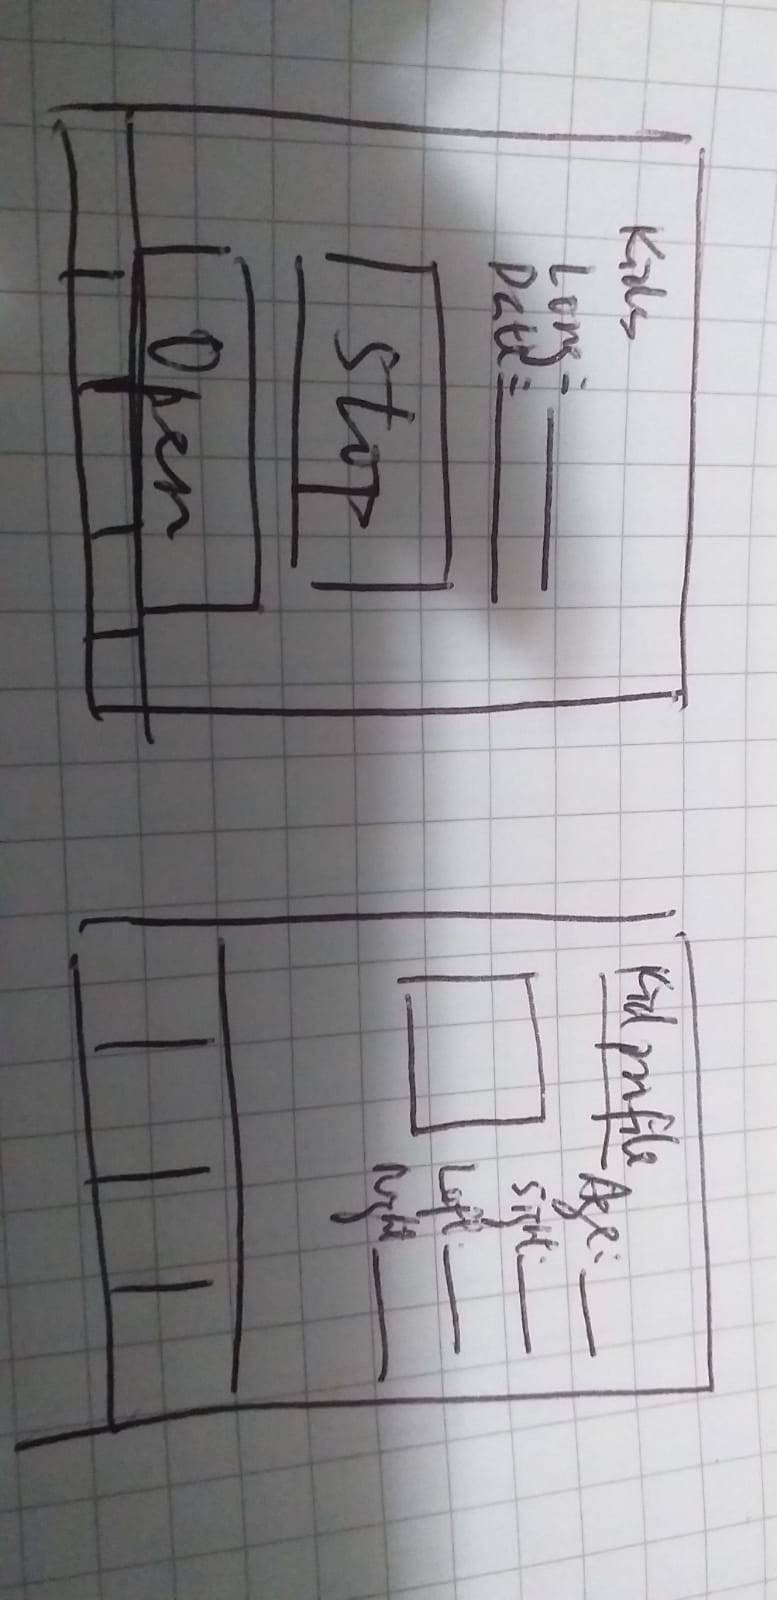 Kids
Long:
Date:
Stop
Open
Kid profile
Age:
Sight:
Left:
Right